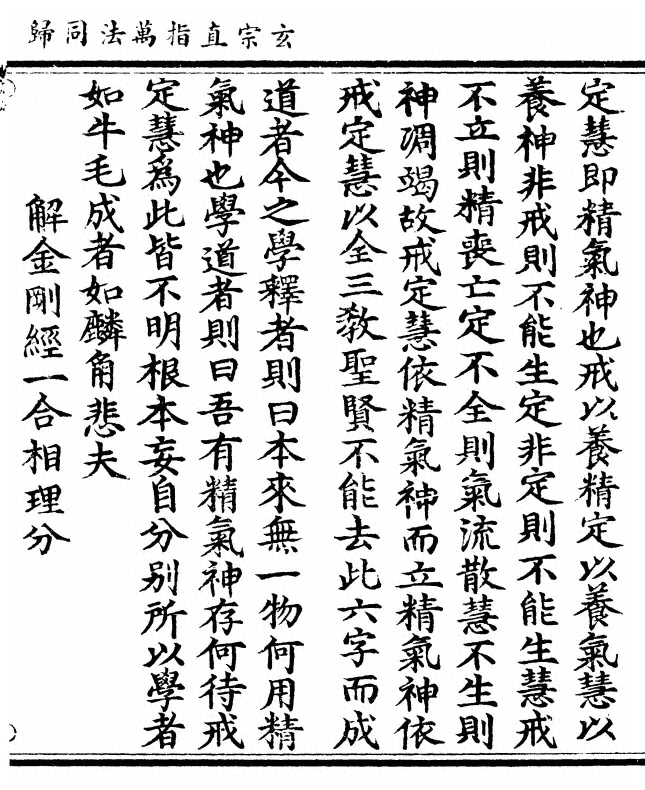 玄宗直指萬法同歸
定慧即精氣神也戒以養精定以養氣慧以
養神非戒則不能生定非定則不能生慧戒
不立則精喪亡定不全則氣流散慧不生則
神凋竭故戒定慧依精氣神而立精氣神依
戒定慧以全三教聖賢不能去此六字而成
道者今之學釋者則曰本來無一物何用精
氣神也學道者則曰吾有精氣神存何待戒
定慧為此皆不明根本妄自分别所以學者
如牛毛成者如麟角悲夫
解金剛經一合相理分